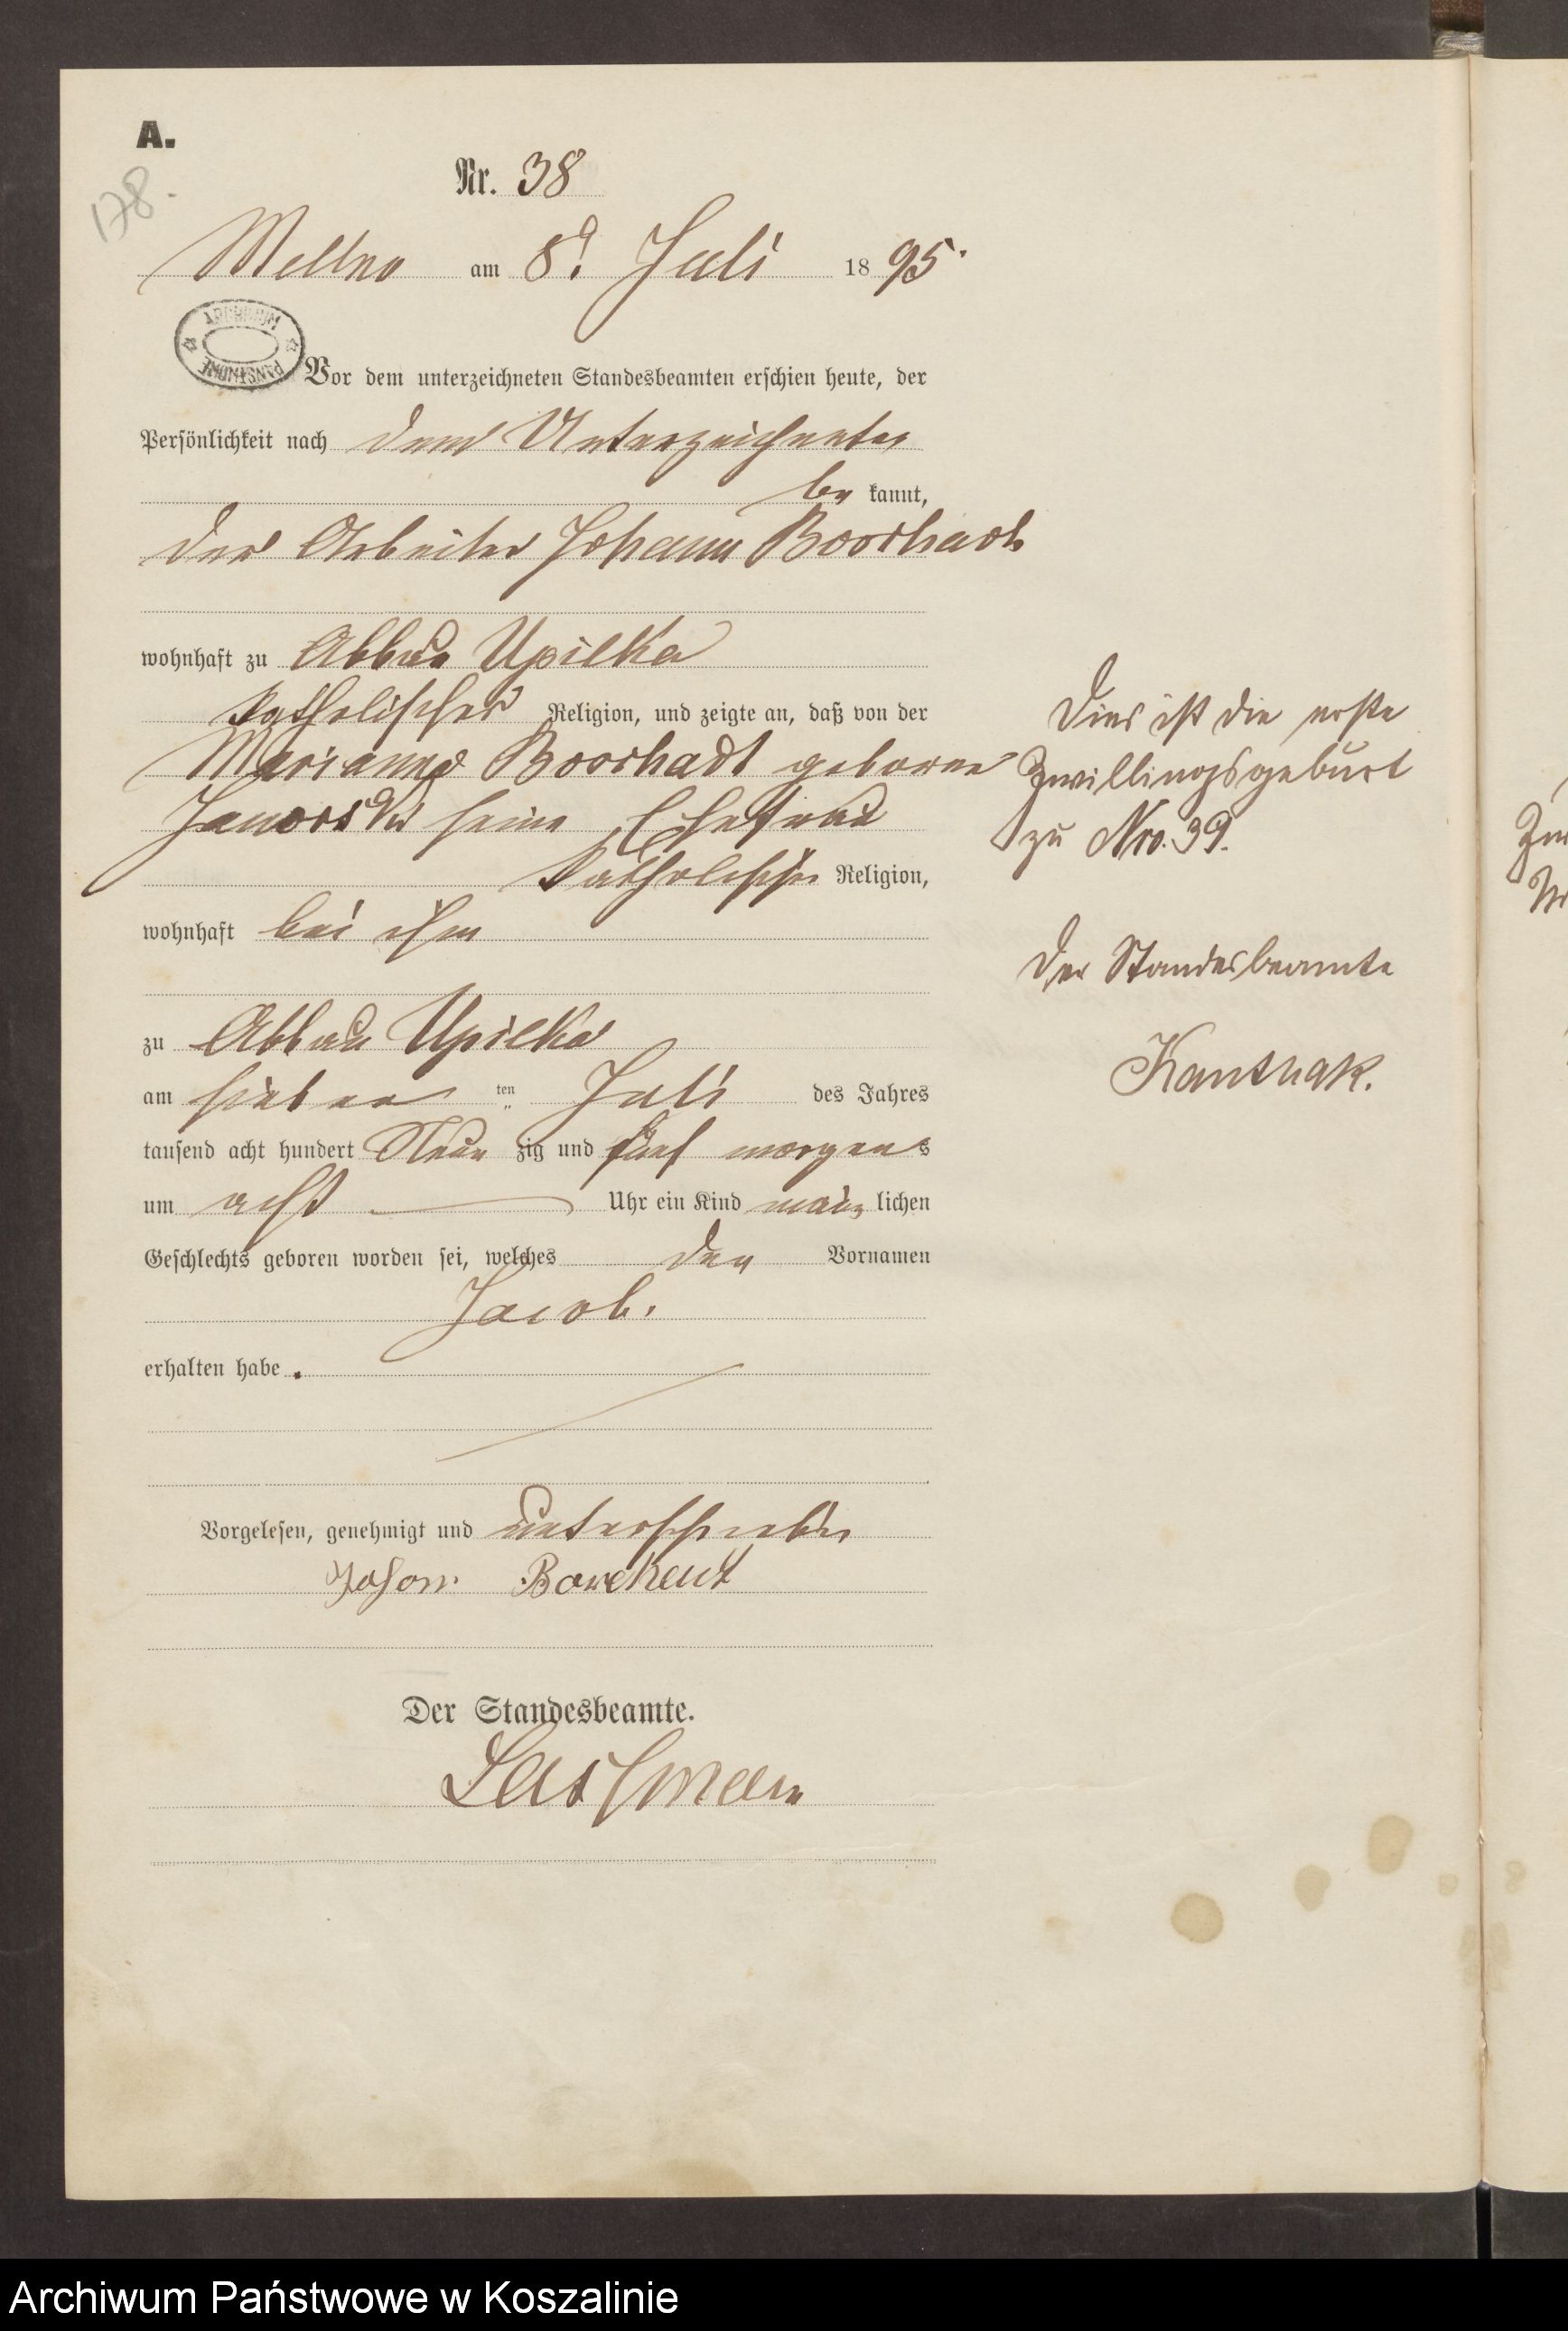 A.
178.
Nr. 38
Mellno am 8. Juli 1895.
ARCHIWUM PAŃSTWOWE
Vor dem unterzeichneten Standesbeamten erschien heute, der
Persönlichkeit nach dem Unterzeichneten
be kannt,
der Arbeiter Johann
wohnhaft zu Abbau Upilka
katholischer Religion, und zeigte an, daß von der
Marianna geborene
seine Ehefrau
katholischer Religion,
wohnhaft bei ihm
zu Abbau Upilka
am sieben ten Juli des Jahres
tausend acht hundert Neun zig und fünf morgens
um acht Uhr ein Kind männlichen
Geschlechts geboren worden sei, welches den Vornamen
Jacob.
erhalten habe.
Vorgelesen, genehmigt und unterschrieben
Johann
Der Standesbeamte.
Dies ist die erste
Zwillingsgeburt
zu Nro. 39.
Der Standesbeamte
Kanthak.
Archiwum Państwowe w Koszalinie